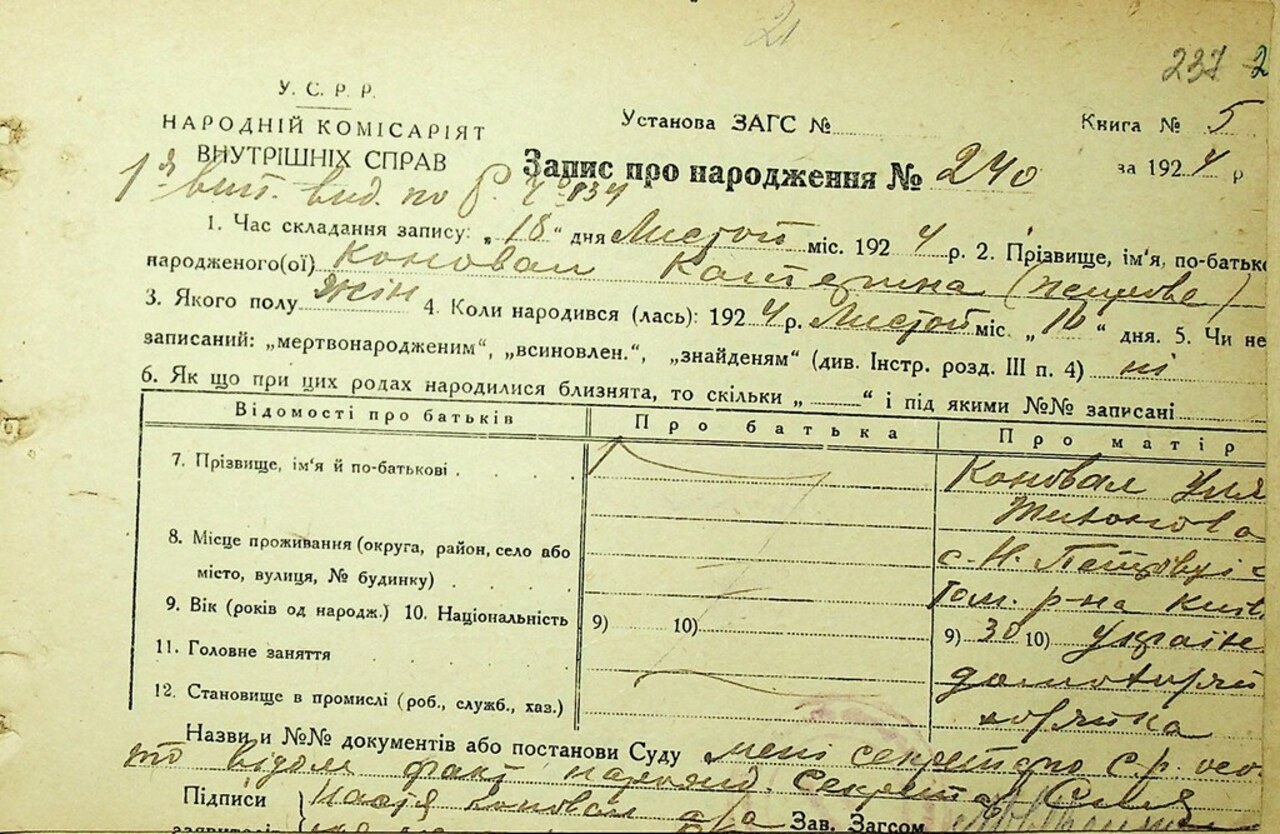 21
237 2
У. С. Р. Р.
НАРОДНІЙ КОМІСАРІЯТ
ВНУТРІШНІХ СПРАВ
Установа ЗАГС №
Книга № 5
Запис про народження № 240
за 1924 р
вид. по
1. Час складання запису: „18" дня Листоп міс. 1924 р. 2. Прізвище, ім'я, по-батьк
народженого(ої) Коновал Катерина
3. Якого полу жін 4. Коли народився (лась): 1924 р. Листоп міс. „16" дня. 5. Чи не
записаний: „мертвонародженим", „всиновлен.", „знайденям" (див. Інстр. розд. III п. 4) ні
6. Як що при цих родах народилися близнята, то скільки „ " і під якими №№ записані
Відомості про батьків Про батька Про матір
7. Прізвище, ім'я й по-батькові . Коновал Уля
8. Місце проживання (округа, район, село або с. Н. Петрівці
місто, вулиця, № будинку) . р-на Київ
9. Вік (років од народж.) 10. Національність 9) 10) 9) 30 10) Україн
11. Головне заняття
12. Становище в промислі (роб., служб., хаз.)
Назви и №№ документів або постанови Суду мені секретарю с.р.
відом факт народж. Секрет
Підписи Коновал а/а Зав. Загсом
заявителів